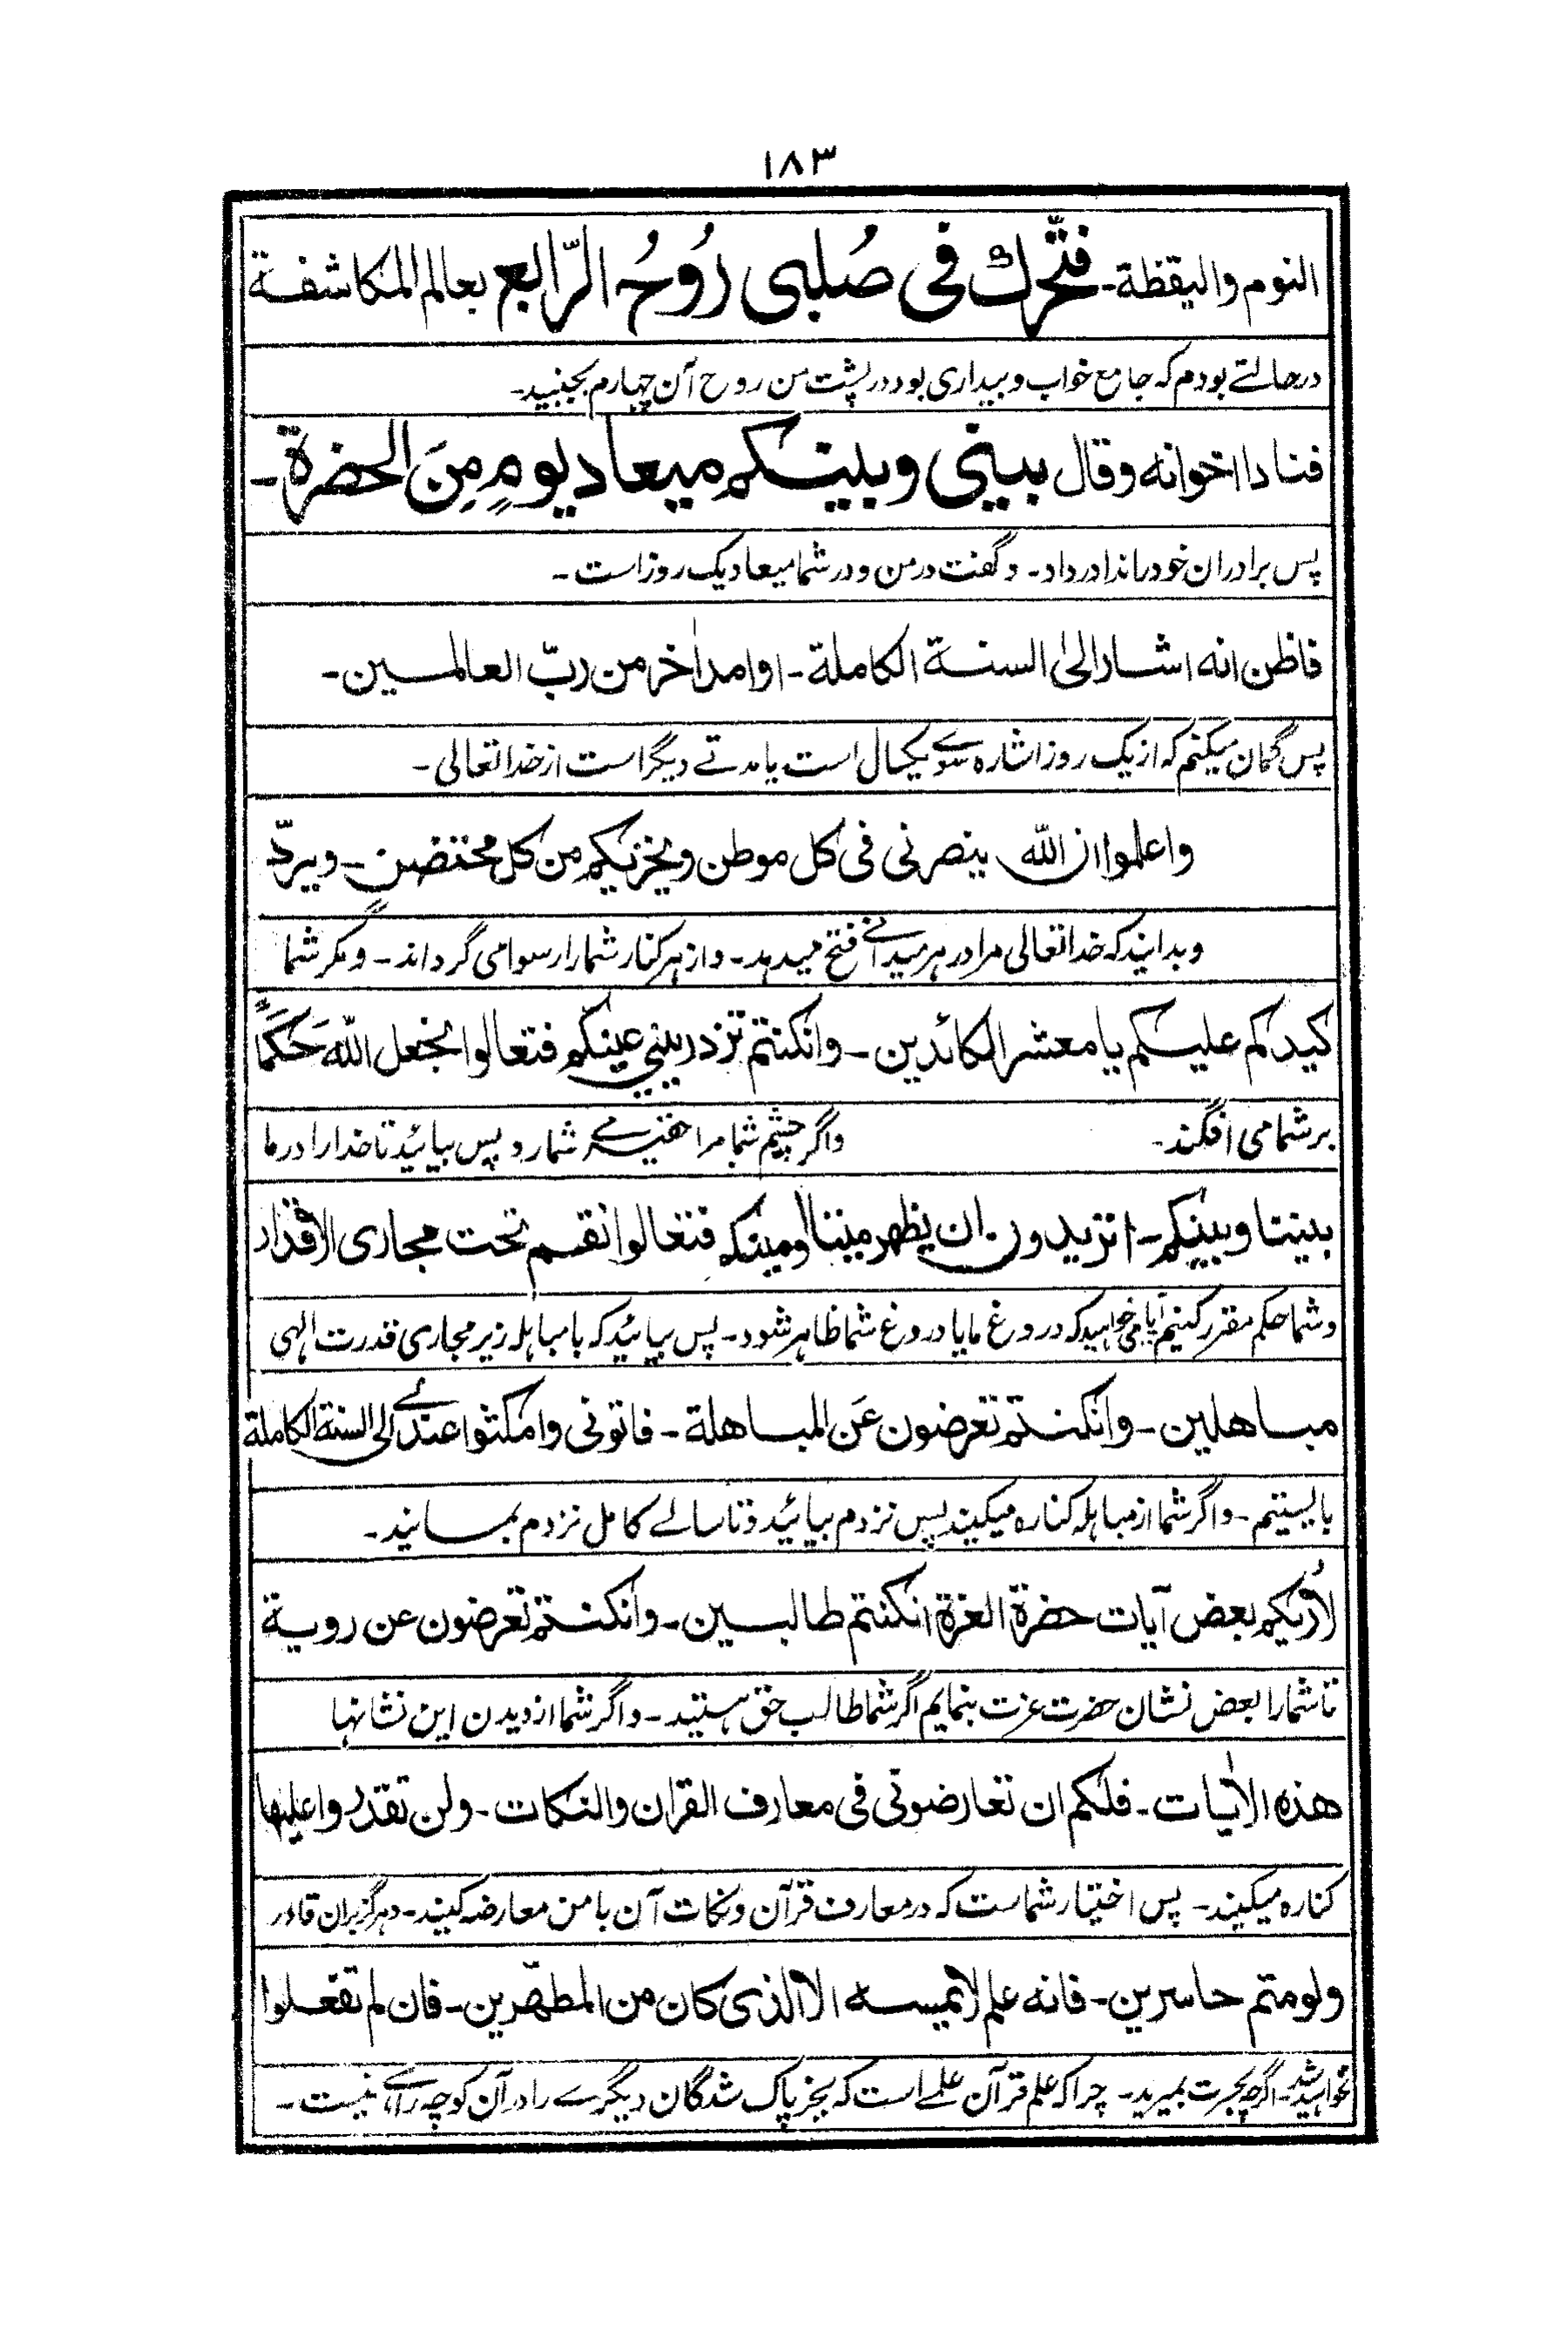 ١٨٣
النوم واليقظة۔ فتحّرك فى صُلبى رُوحُ الرّابع بعالم المكاشفة
درحالتے بودم کہ جامع خواب و بیداری بود در پشت من روح آن چہارم بجنبید۔
فنادا اخوانه وقال بينى وبينكم ميعاد يومٍ مِنَ الحضرة۔
پس برادران خود را ندا در داد۔ و گفت در من و در شما میعاد یک روز است۔
فاظن انه اشار الىٰ السنة الكاملة۔ او امدٍ اٰخر من ربّ العالمين۔
پس گمان میکنم کہ از یک روز اشارہ سوے یکسال است یا مدتے دیگر است از خدا تعالی۔
واعلموا ان اللّٰه ينصرنى فى كل موطن ويخزيكم من كل محتضن۔ ويردّ
و بدانید کہ خدا تعالی مرا در ہر میدانے فتح میدہد۔ و از ہر کنار شمارا رسوا می گرداند۔ و مکر شما
كيدكم عليكم يا معشر الكائدين۔ وانكنتم تزدرينى عينكم فتعالوا نجعل اللّٰه حَكَمًا
بر شما می افگند۔ و اگر چشم شما مرا حقیر مے شمارد پس بیائید تا خدا را در ما
بيننا وبينكم۔ اتريدون ان يظهر ميننا او مينكم فتعالوا نقسم تحت مجارى الاقدار
و شما حکم مقرر کنیم آیا می خواہید کہ دروغ ما یا دروغ شما ظاہر شود۔ پس بیائید کہ با مباہلہ زیر مجاری قدرت الٰہی
مباهلين۔ وانكنتم تعرضون عَن المباهلة۔ فاتونى وامكثوا عندے الى السنة الكاملة
بایستیم۔ و اگر شما از مباہلہ کنارہ میکنید پس نزدم بیائید و تا سالے کامل نزدم بمانید۔
لاُريكم بعض آيات حضرة العزة انكنتم طالبين۔ وانكنتم تعرضون عن روية
تا شمارا بعض نشان حضرت عزت بنمایم اگر شما طالب حق ہستید۔ و اگر شما از دیدن این نشانہا
هذه الاٰيات۔ فلكم ان تعارضونى فى معارف القراٰن والنكات۔ ولن تقدروا عليها
کنارہ میکنید۔ پس اختیار شماست کہ در معارف قرآن و نکات آن با من معارضہ کنید۔ و ہرگز بران قادر
ولو متم حاسرين۔ فانه علم لا يمسه الا الذى كان من المطهّرين۔ فان لم تفعلوا
نخواہید شد۔ اگرچہ بحسرت بمیرید۔ چرا کہ علم قرآن علمے است کہ بجز پاک شدگان دیگرے را در آن کوچہ راہے نیست۔